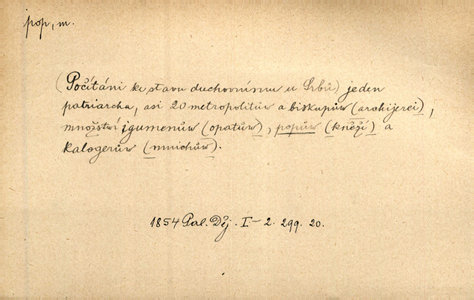 pop, m.
(Počítáni ke stavu duchovnímu u Srbů) jeden
patriarcha, asi 20 metropolitův a biskupův (archijerei),
množství igumenův (opatův), popův (kněží) a
kalogerův (mnichův).
1854 Pal. Děj. I-2. 299. 20.